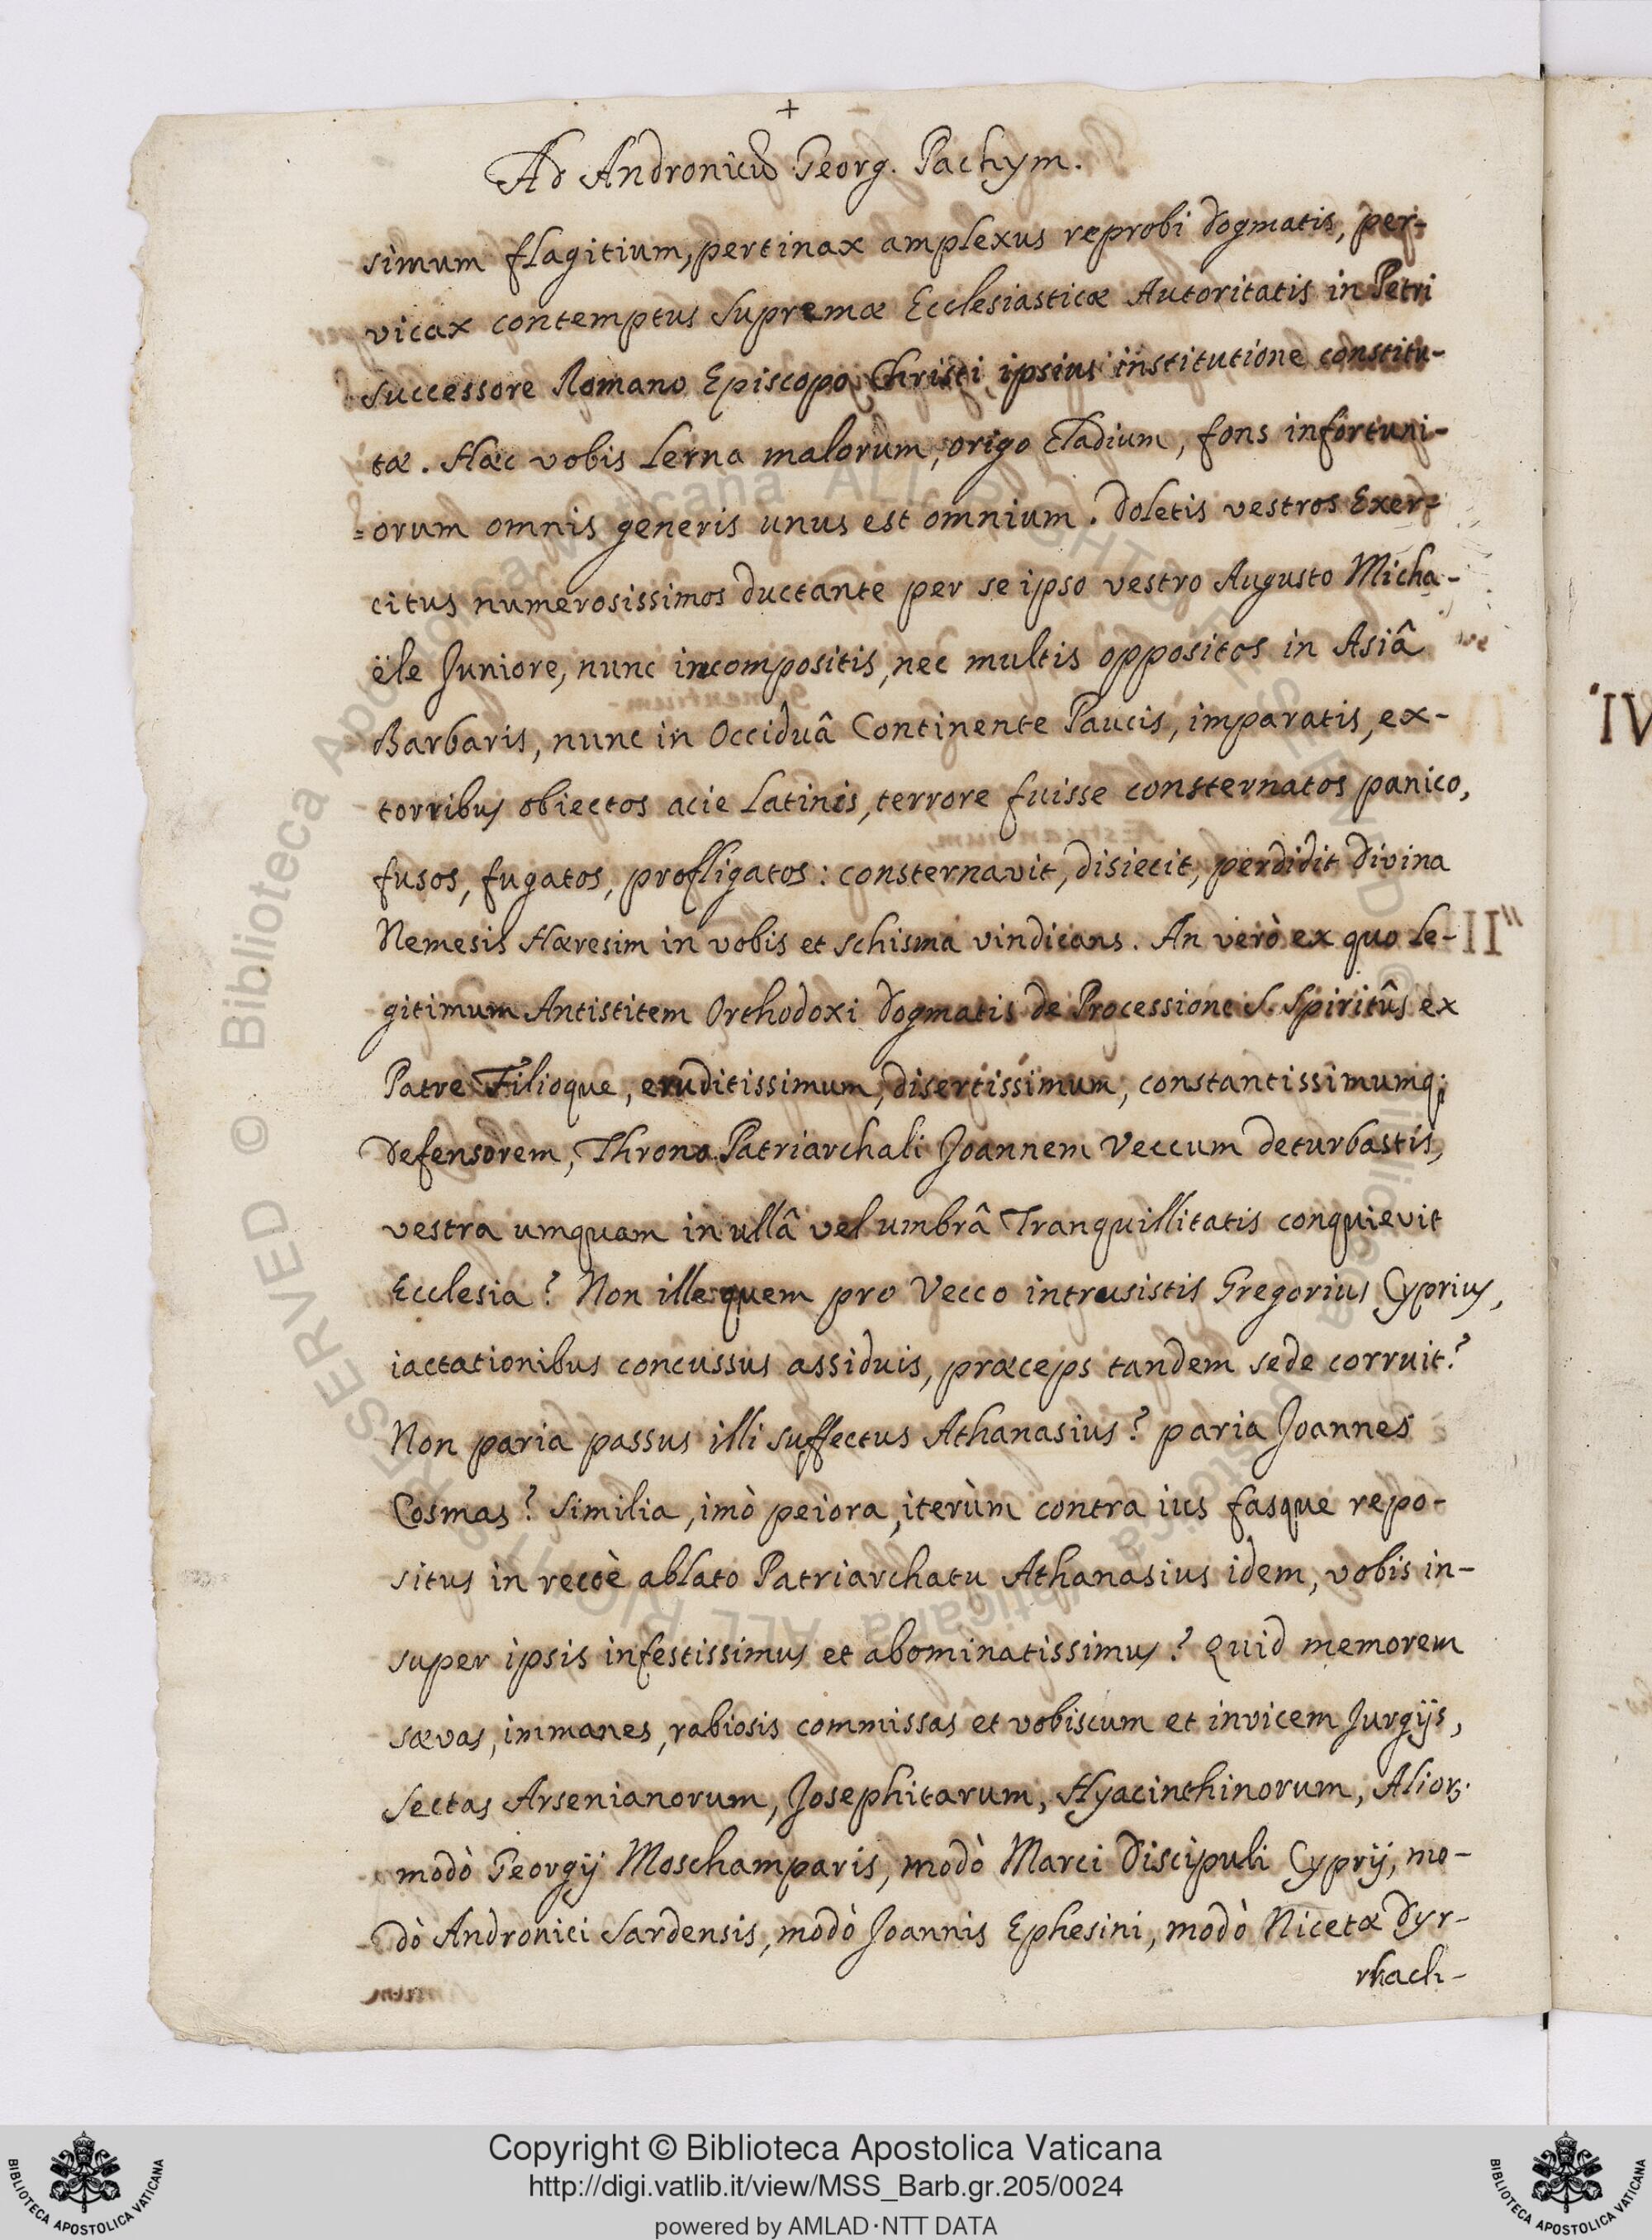 +
Ad Andronicũ Georg. Pachym.
simum flagitium, pertinax amplexus reprobi dogmatis, per-
vicax contemptus Supremæ Ecclesiasticæ Autoritatis in Petri
Successore Romano Episcopo Christi ipsius institutione constitu-
tæ. Hæc vobis Lerna malorum, origo Cladium, fons infortuni-
=orum omnis generis unus est omnium. Doletis vestros Exer-
citus numerosissimos ductante per se ipso vestro Augusto Micha-
ële Juniore, nunc incompositis, nec multis oppositos in Asiâ
Barbaris, nunc in Occiduâ Continente Paucis, imparatis, ex-
torribus obiectos acie Latinis, terrore fuisse consternatos panico,
fusos, fugatos, profligatos: consternavit, disiecit, perdidit Divina
Nemesis Hæresim in vobis et schisma vindicans. An verò ex quo le- II"
gitimum Antistitem Orthodoxi Dogmatis de Processione S. Spiritûs ex
Patre Filioque, eruditissimum, disertissimum, constantissimumq;
Defensorem, Throno Patriarchali Joannem Veccum deturbastis,
vestra umquam in ullâ vel umbrâ Tranquillitatis conquievit
Ecclesia? Non ille quem pro Vecco intrusistis Gregorius Cyprius,
iactationibus concussus assiduis, præceps tandem sede corruit?
Non paria passus illi suffectus Athanasius? paria Joannes
Cosmas? Similia, imò peiora, iterùm contra ius fasque repo-
situs in rectè ablato Patriarchatu Athanasius idem, vobis in-
super ipsis infestissimus et abominatissimus? Quid memorem
sævas, immanes, rabiosis commissas et vobiscum et invicem Jurgijs,
Sectas Arsenianorum, Josephitarum, Hyacinthinorum, Alioꝝ.
modò Georgij Moschamparis, modò Marci Discipuli Cyprij, mo-
dò Andronici Sardensis, modò Joannis Ephesini, modò Nicetæ Dyr-
rhach-
IV
Copyright © Biblioteca Apostolica Vaticana
http://digi.vatlib.it/view/MSS_Barb.gr.205/0024
powered by AMLAD·NTT DATA